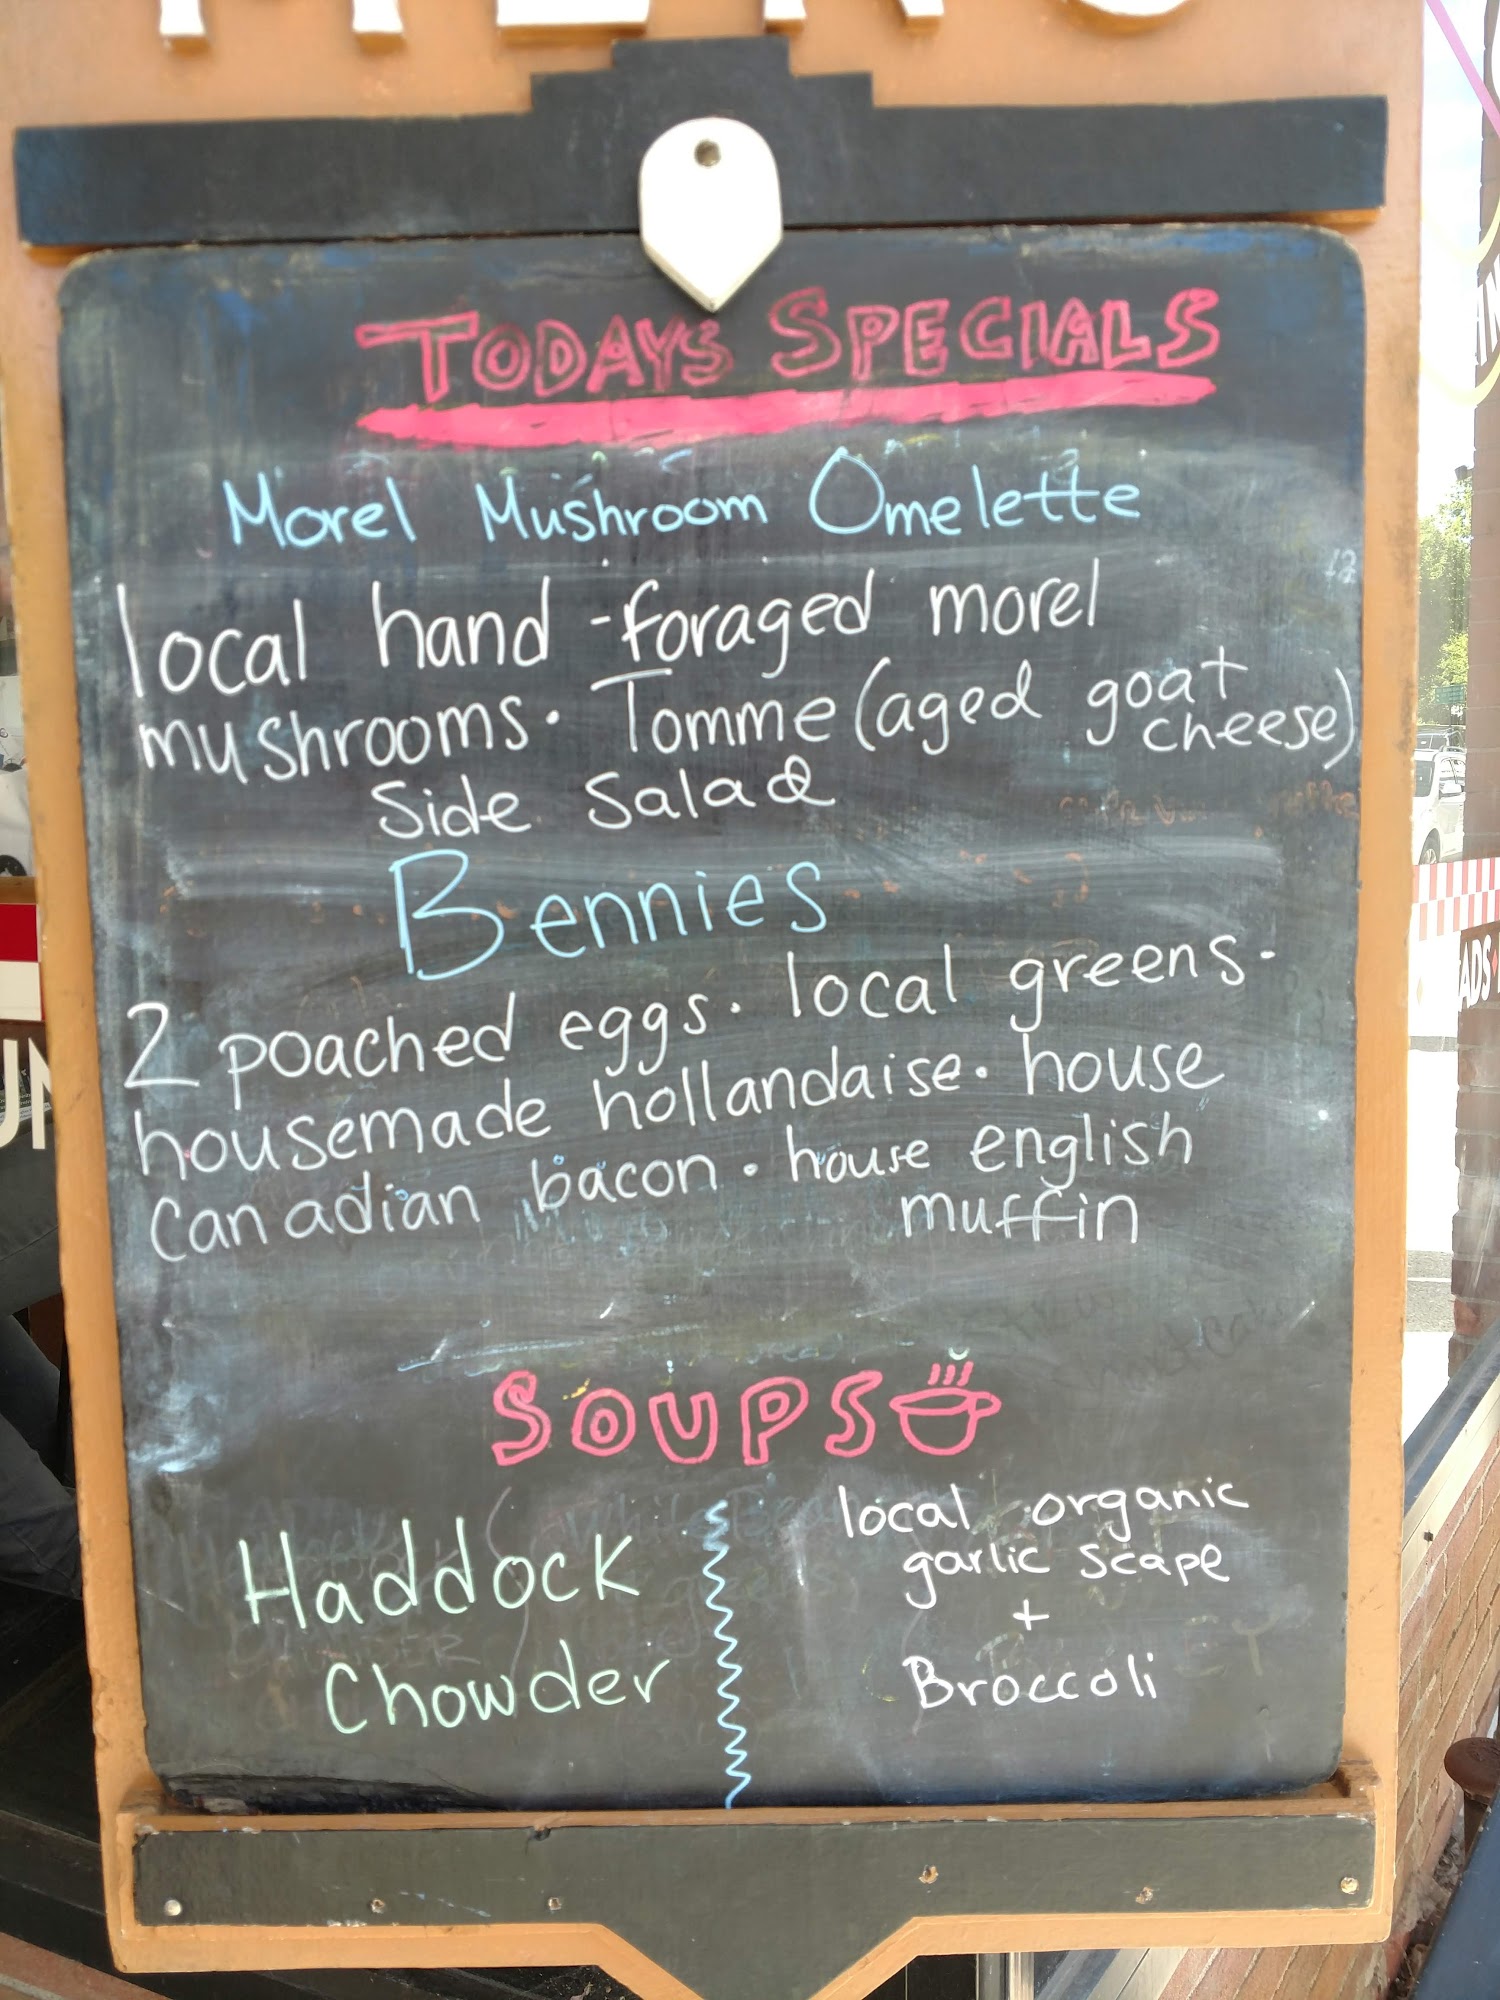 TODAYS SPECIALS
Morel Mushroom Omelette
12
local hand-foraged morel
mushrooms · Tomme (aged goat
cheese)
Side Salad
Bennies
2 poached eggs · local greens ·
housemade hollandaise · house
Canadian bacon · house english
muffin
SOUPS
Haddock
Chowder
local organic
garlic scape
+
Broccoli
ADS